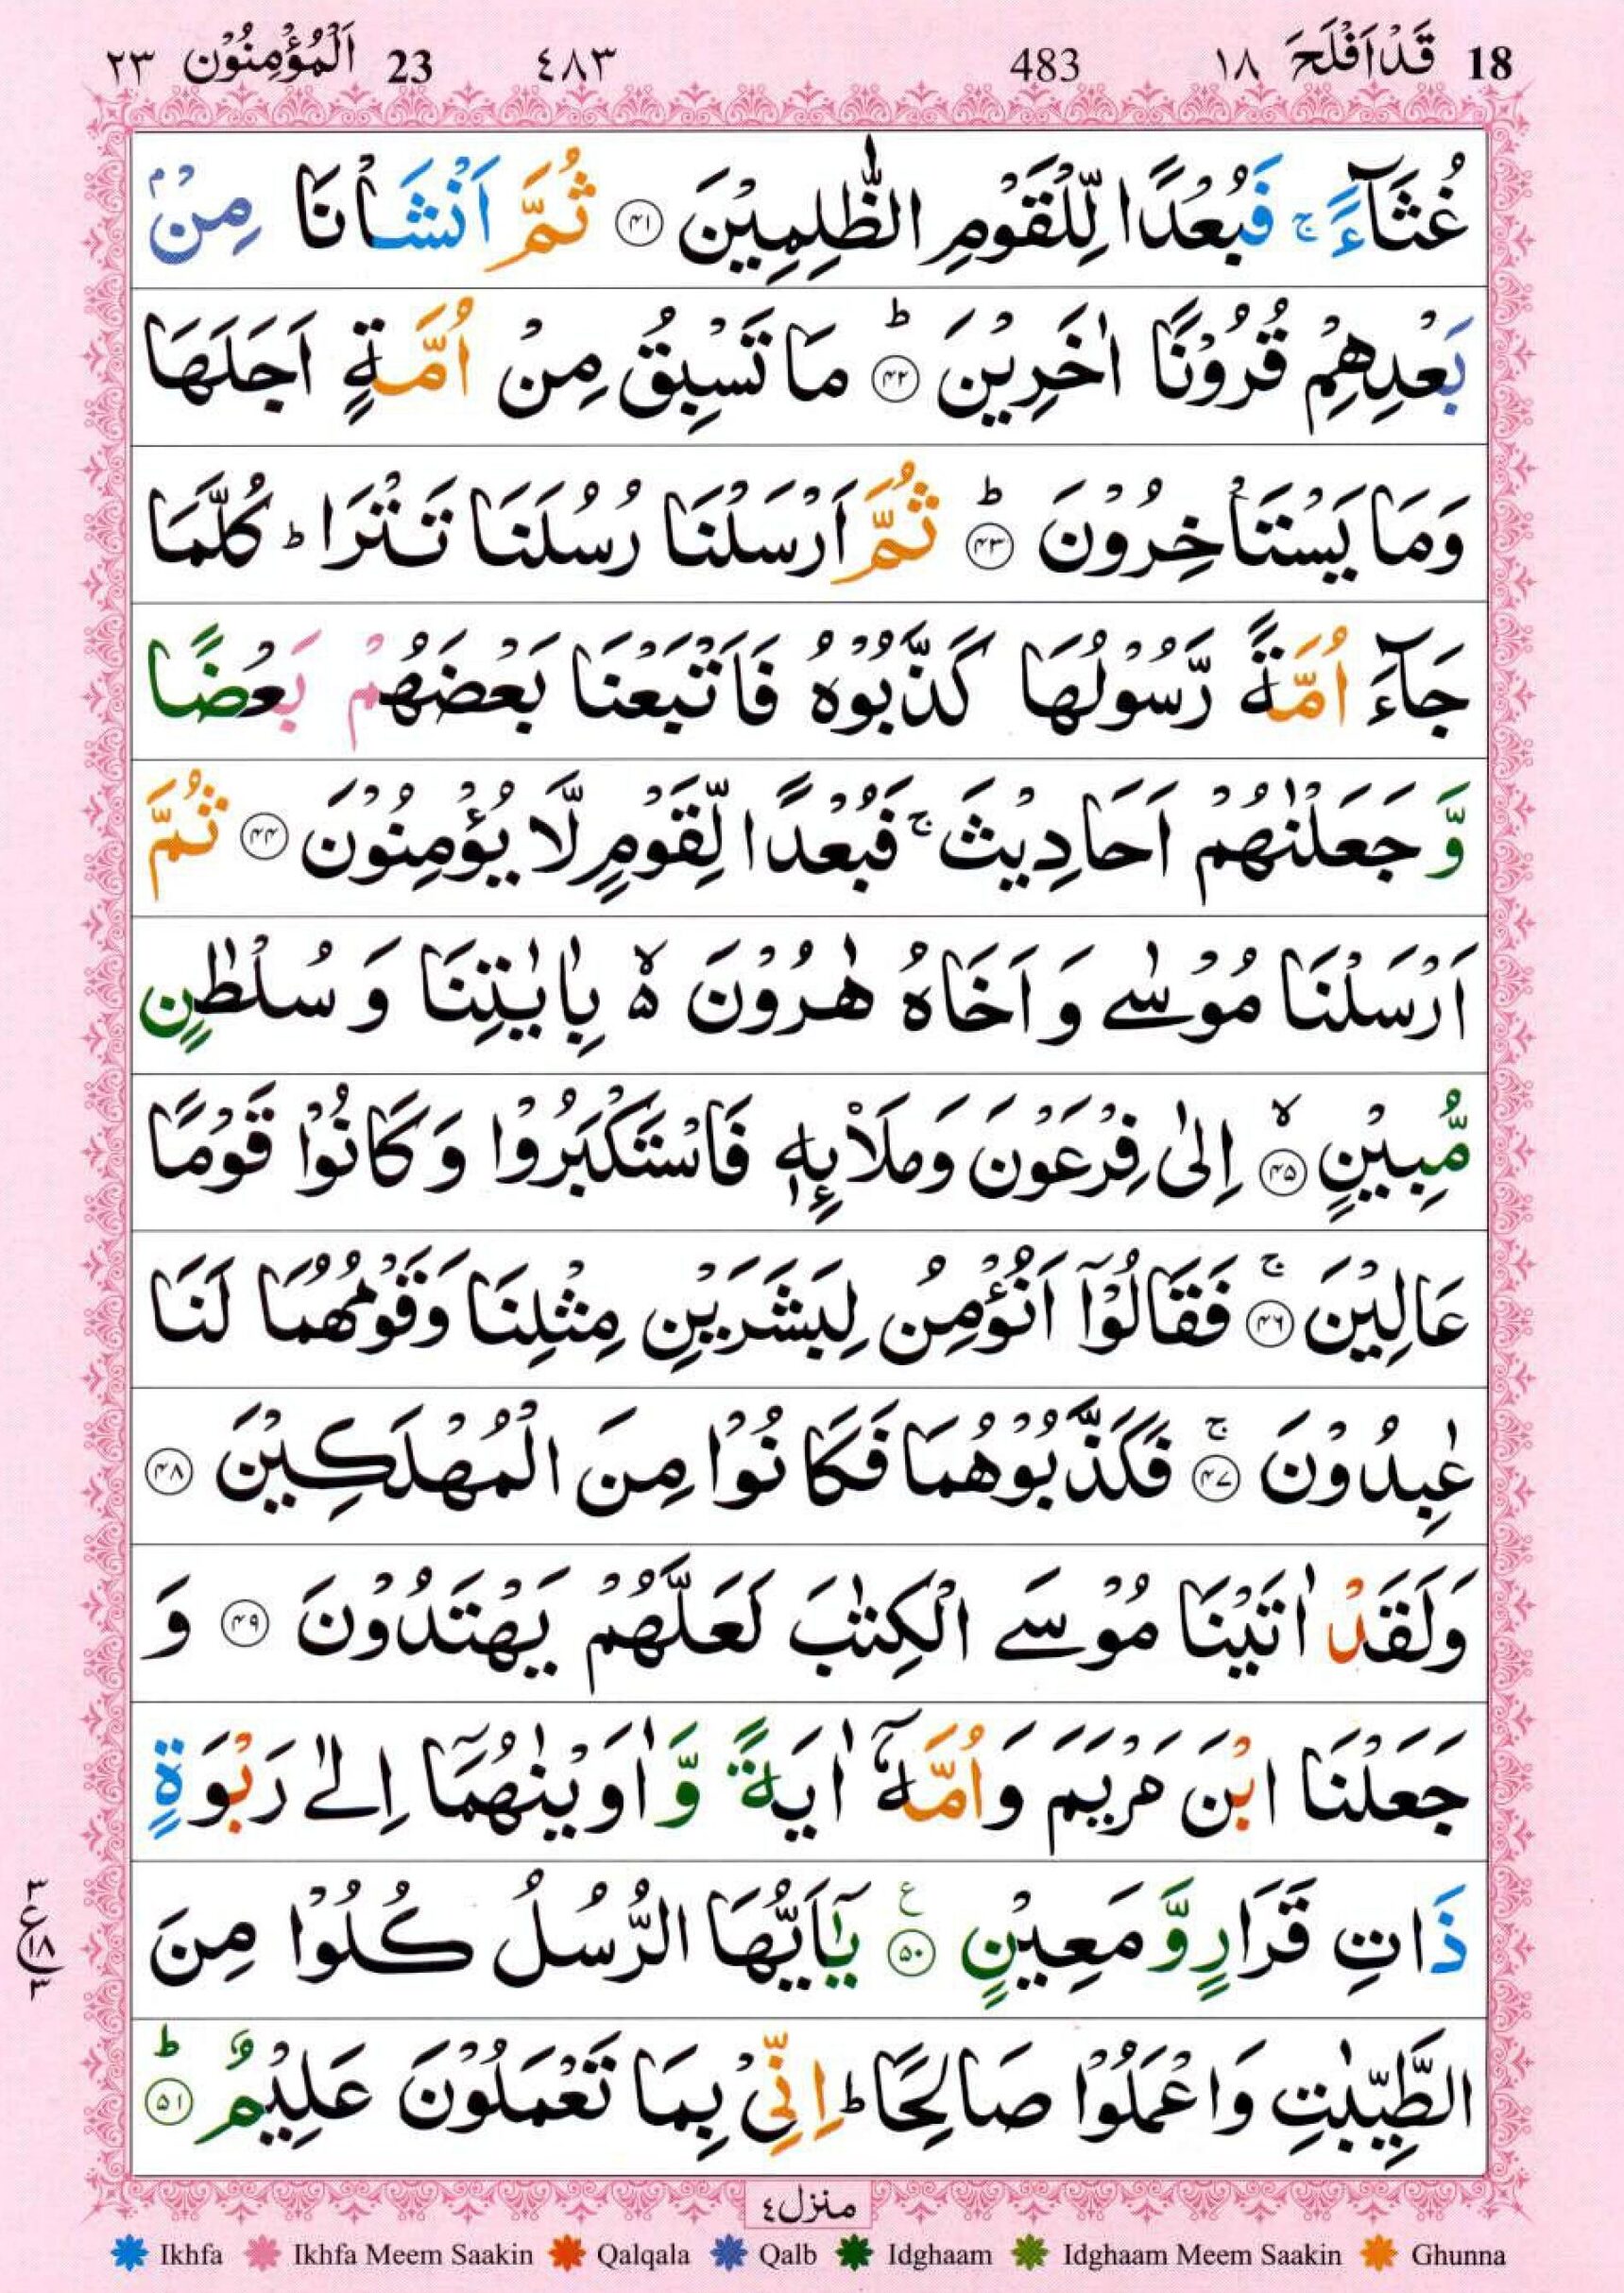 18 قَدْ اَفْلَحَ ١٨ 483 ٤٨٣ 23 اَلْمُؤْمِنُوْن ٢٣
غُثَآءً ۚ فَبُعْدًا لِّلْقَوْمِ الظّٰلِمِيْنَ ۴۱ ثُمَّ اَنْشَاْنَا مِنْۢ
بَعْدِهِمْ قُرُوْنًا اٰخَرِيْنَ ؕ ۴۲ مَا تَسْبِقُ مِنْ اُمَّةٍ اَجَلَهَا
وَمَا يَسْتَاْخِرُوْنَ ؕ ۴۳ ثُمَّ اَرْسَلْنَا رُسُلَنَا تَتْرَا ؕ كُلَّمَا
جَآءَ اُمَّةً رَّسُوْلُهَا كَذَّبُوْهُ فَاَتْبَعْنَا بَعْضَهُمْ بَعْضًا
وَّجَعَلْنٰهُمْ اَحَادِيْثَ ۚ فَبُعْدًا لِّقَوْمٍ لَّا يُؤْمِنُوْنَ ۴۴ ثُمَّ
اَرْسَلْنَا مُوْسٰى وَ اَخَاهُ هٰرُوْنَ ۙ۬ بِاٰيٰتِنَا وَ سُلْطٰنٍ
مُّبِيْنٍ ۙ ۴۵ اِلٰى فِرْعَوْنَ وَمَلَا۟ئِهٖ فَاسْتَكْبَرُوْا وَ كَانُوْا قَوْمًا
عَالِيْنَ ۚ ۴۶ فَقَالُوْٓا اَنُؤْمِنُ لِبَشَرَيْنِ مِثْلِنَا وَقَوْمُهُمَا لَنَا
عٰبِدُوْنَ ۚ ۴۷ فَكَذَّبُوْهُمَا فَكَانُوْا مِنَ الْمُهْلَكِيْنَ ۴۸
وَلَقَدْ اٰتَيْنَا مُوْسَى الْكِتٰبَ لَعَلَّهُمْ يَهْتَدُوْنَ ۴۹ وَ
جَعَلْنَا ابْنَ مَرْيَمَ وَاُمَّهٗٓ اٰيَةً وَّاٰوَيْنٰهُمَآ اِلٰى رَبْوَةٍ
ذَاتِ قَرَارٍ وَّمَعِيْنٍ ۵۰ ع يٰٓاَيُّهَا الرُّسُلُ كُلُوْا مِنَ
٣ ع ١٨ ٣
الطَّيِّبٰتِ وَاعْمَلُوْا صَالِحًا ؕ اِنِّىْ بِمَا تَعْمَلُوْنَ عَلِيْمٌ ؕ ۵۱
منزل ٤
Ikhfa Ikhfa Meem Saakin Qalqala Qalb Idghaam Idghaam Meem Saakin Ghunna